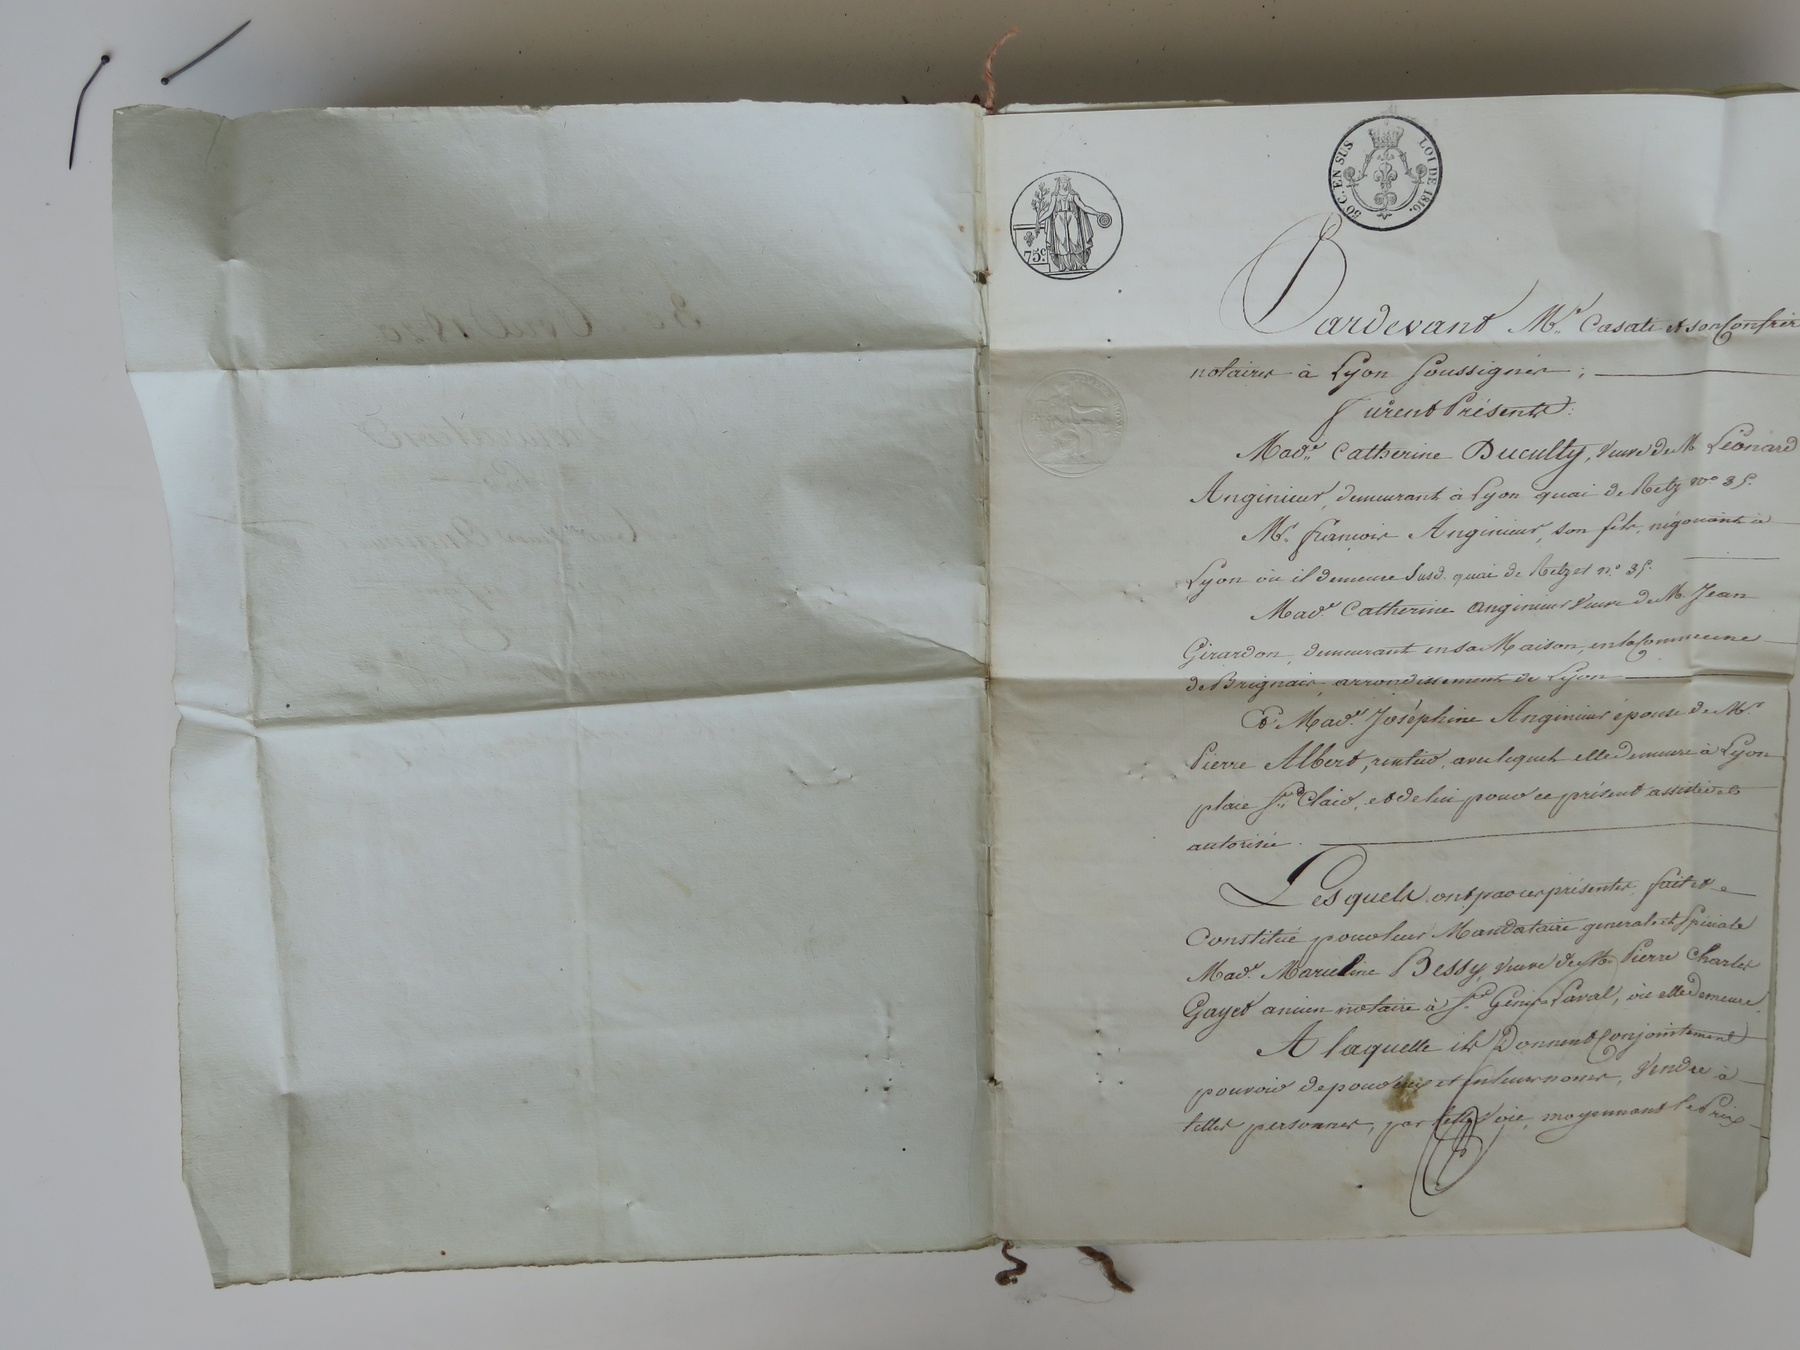 50 C. EN SUS LOI DE 1816.
75c
Pardevant Mre. Casati et son Confrère
notaires à Lyon soussignés ;
Furent Présents :
Made. Catherine Duculty, veuve de Mr. Léonard
Anginieur, demeurant à Lyon quai de Retz no. 35.
Mr. françois Anginieur, son fils, négociant à
Lyon où il demeure susd. quai de Retz et no. 35.
Made. Catherine Anginieur veuve de Mr. Jean
Girardon, demeurant en sa Maison, en la Commune
de Brignais, arrondissement de Lyon
Et Made. Joséphine Anginieur épouse de Mr.
Pierre Albert, rentier, avec lequel elle demeure à Lyon
place St. Clair, et de lui pour ce présent assistée et
autorisée.
Lesquels ont par ces présentes fait et
Constitué pour leur Mandataire generale et Speciale
Made. Marceline Bessy, veuve de Mr. Pierre Charles
Gayet ancien notaire à St. Genis Laval, où elle demeure.
A laquelle ils Donnent Conjointement
pouvoir de pour eux et en leurs noms, Vendre à
telles personnes, par telle voie, moyennant le Prix